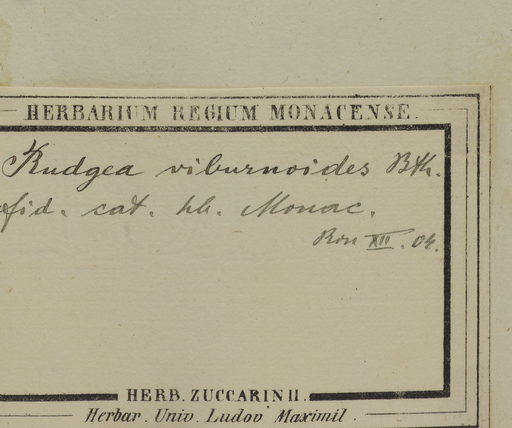 HERBARIUM REGIUM MONACENSE.
Rudgea viburnoides Bth.
fid. cat. hb. Monac.
XII. 04.
HERB. ZUCCARINII.
Herbar. Univ. Ludov Maximil.